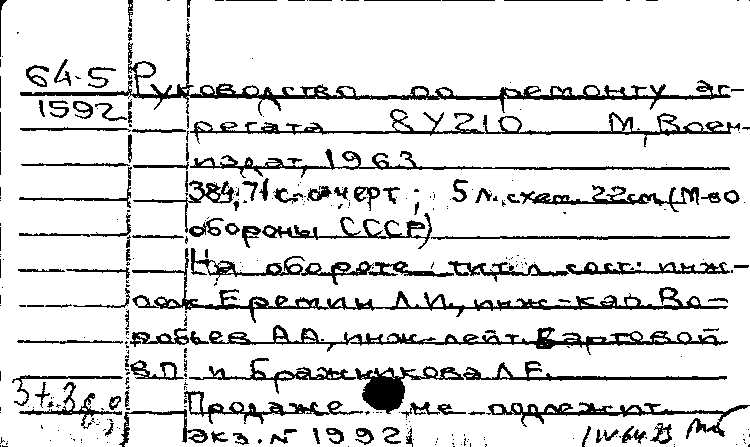 64-5
1592
Руководство по ремонту аг-
регата 8У210 М, Воен-
издат, 1963
384, 71 с. с черт; 5 л. схем. 22 см. (М-во
обороны СССР)
На обороте тит. л. сост: инж-
полк. Еремин Л.И., инж-кап. Во-
робьев А.А., инж-лейт. Вартовой
В.П и Бражникова Л.Е.
Продаже не подлежит.
экз. № 1992